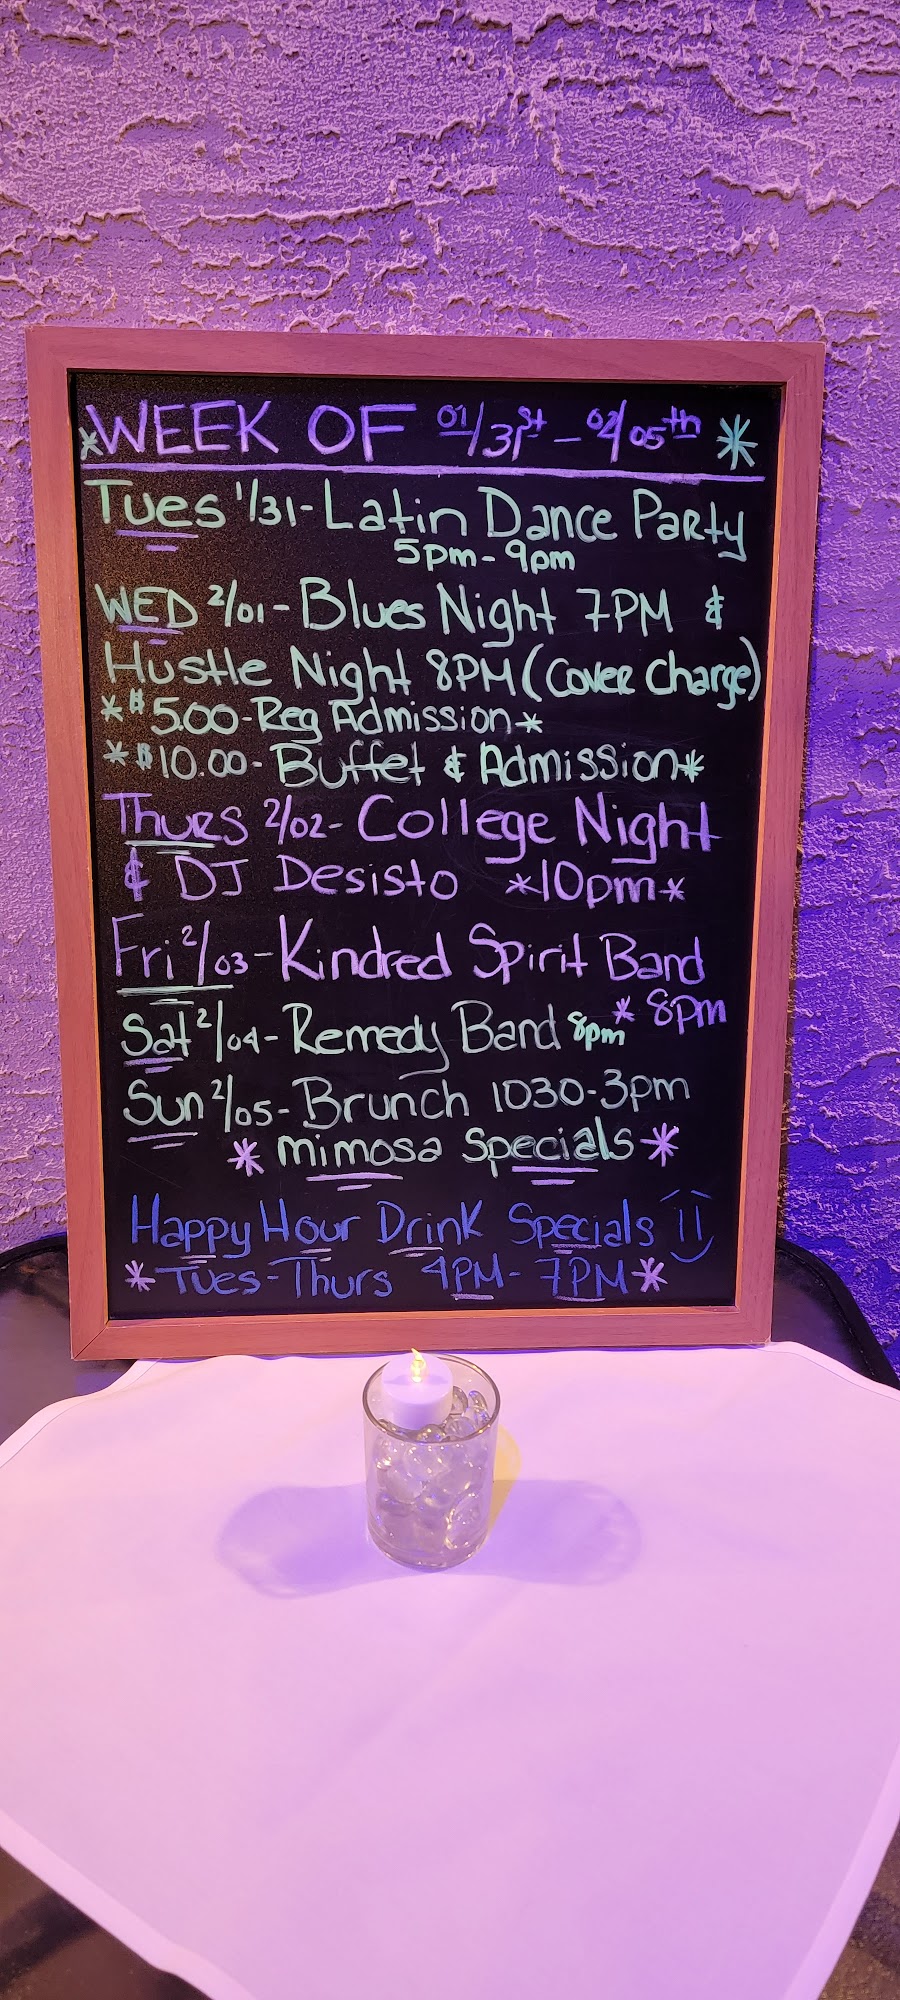 *WEEK OF 01/31st - 02/05th *
Tues 1/31 - Latin Dance Party
5pm - 9pm
WED 2/01 - Blues Night 7PM &
Hustle Night 8PM (Cover Charge)
*$5.00 - Reg Admission*
*$10.00 - Buffet & Admission*
Thurs 2/02 - College Night
& DJ Desisto *10pm*
Fri 2/03 - Kindred Spirit Band
* 8pm
Sat 2/04 - Remedy Band 8pm
Sun 2/05 - Brunch 1030-3pm
* mimosa Specials *
Happy Hour Drink Specials
* Tues-Thurs 4PM - 7PM *